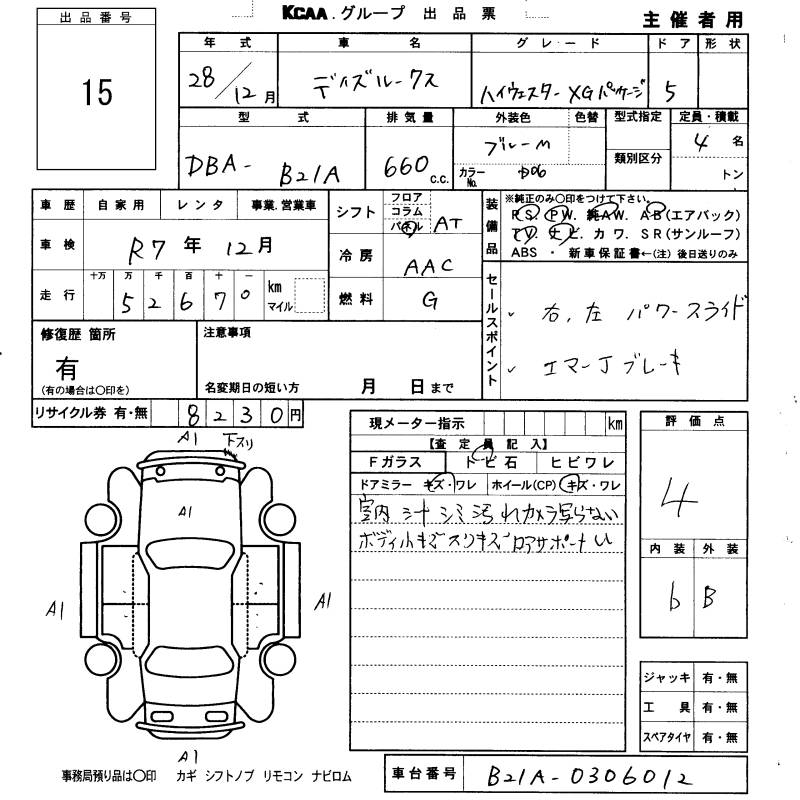 出品番号
15
KCAA.グループ 出品票
主催者用
年式 車名 グレード ドア 形状
28/12月 デイズルークス ハイウェスターXGパッケージ 5
型式 排気量 外装色 色替 型式指定 定員・積載
DBA- B21A 660 c.c. ブルーM 4名
カラーNo. 類別区分 トン
車歴 自家用 レンタ 事業.営業車
車検 R7年 12月
走行 十万 万 千 百 十 一 km マイル
5 2 6 7 0
シフト フロア コラム パネル AT
冷房 AAC
燃料 G
装備品
※純正のみ〇印をつけて下さい。
P.S. P.W. 純A.W. A.B(エアバック)
T.V. ナビ. カワ. S.R(サンルーフ)
ABS ・ 新車保証書←(注) 後日送りのみ
セールスポイント
右,左 パワースライド
エマージブレーキ
修復歴 箇所
有
(有の場合は〇印を)
注意事項
名変期日の短い方 月 日まで
リサイクル券 有・無 8230円
A1 下スリ
A1
A1
A1
A1
現メーター指示 km
【査定員記入】
Fガラス トビ石 ヒビワレ
ドアミラー キズ・ワレ ホイール(CP) キズ・ワレ
室内 汁 シミ 汚れカメラ写らない
ボディ小キズスリキズ ロアサポートU
評価点
4
内装 外装
b B
ジャッキ 有・無
工具 有・無
スペアタイヤ 有・無
事務局預り品は〇印 カギ シフトノブ リモコン ナビロム
車台番号 B21A-0306012